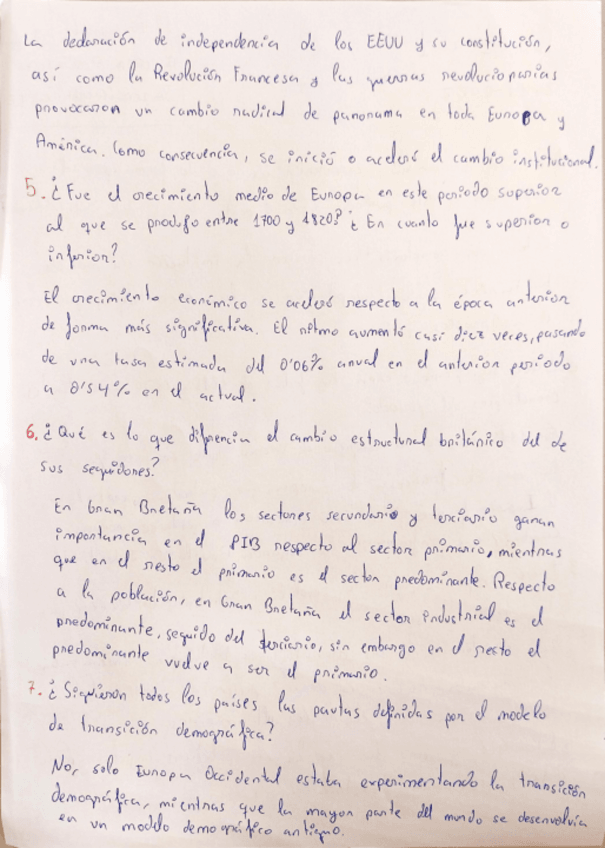 La declaración de independencia de los EEUU y su constitución,
así como la Revolución Francesa y las guerras revolucionarias
provocaron un cambio radical de panorama en toda Europa y
América. Como consecuencia, se inició o aceleró el cambio institucional.
5. ¿Fue el crecimiento medio de Europa en este periodo superior
al que se produjo entre 1700 y 1820? ¿En cuanto fue superior o
inferior?
El crecimiento económico se aceleró respecto a la época anterior
de forma más significativa. El ritmo aumentó casi diez veces, pasando
de una tasa estimada del 0'06% anual en el anterior periodo
a 0'54% en el actual.
6. ¿Qué es lo que diferencia el cambio estructural británico del de
sus seguidores?
En Gran Bretaña los sectores secundario y terciario ganan
importancia en el PIB respecto al sector primario, mientras
que en el resto el primario es el sector predominante. Respecto
a la población, en Gran Bretaña el sector industrial es el
predominante, seguido del terciario, sin embargo en el resto el
predominante vuelve a ser el primario.
7. ¿Siguieron todos los países las pautas definidas por el modelo
de transición demográfica?
No, solo Europa Occidental estaba experimentando la transición
demográfica, mientras que la mayor parte del mundo se desenvolvía
en un modelo demográfico antiguo.